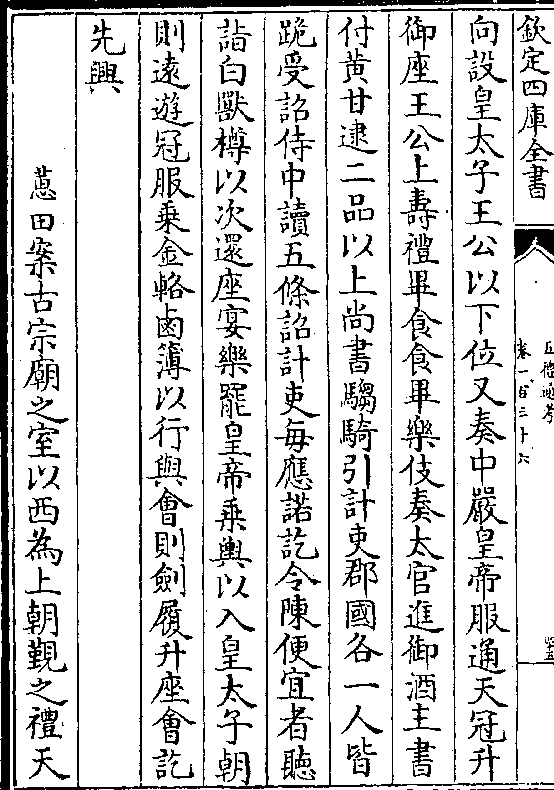 欽定四庫全書
卷一百三十六
向設皇太子王公以下位又奏中嚴皇帝服通天冠升
御座王公上壽禮畢食食畢樂伎奏太官進御酒主書
付黄甘逮二品以上尚書騶騎引計吏郡國各一人皆
跪受詔侍中讀五條詔計吏每應諾訖令陳便宜者聽
詣白獸樽以次還座宴樂罷皇帝乗輿以入皇太子朝
則遠遊冠服乗金輅鹵簿以行與會則劍履升座會訖
先興
蕙田案古宗廟之室以西為上朝覲之禮天